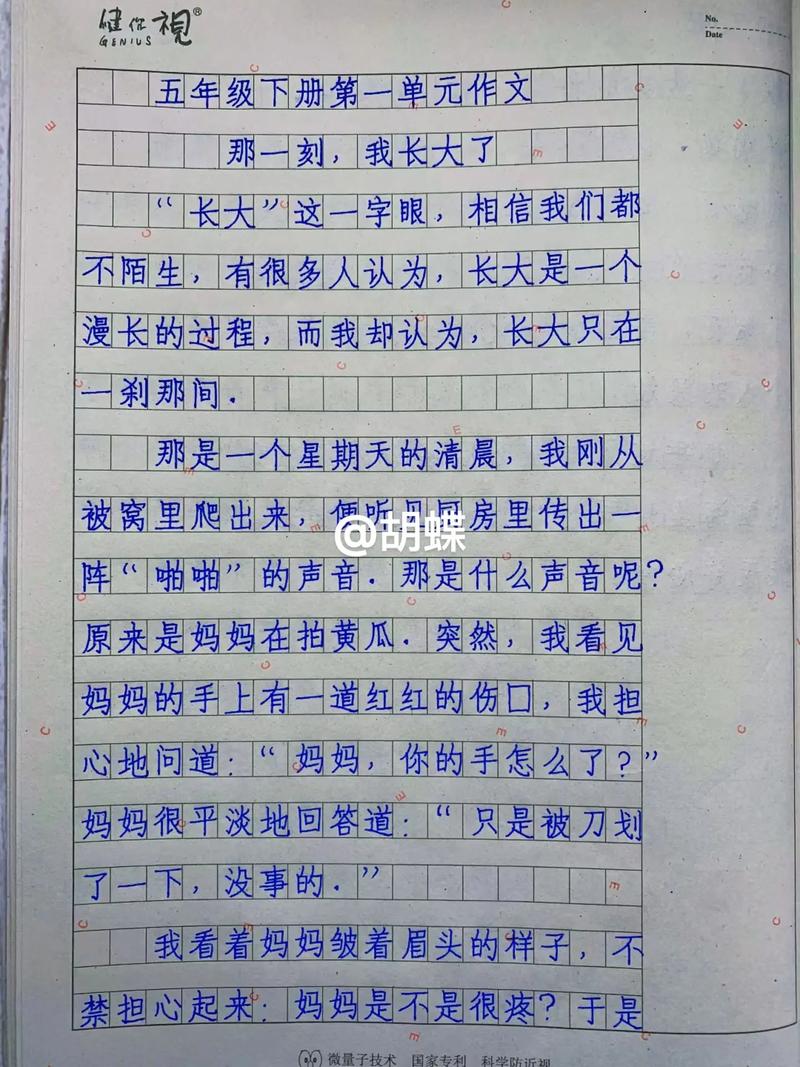 健你視®
GENIUS
No.
Date
五年级下册第一单元作文
那一刻，我长大了
“长大”这一字眼，相信我们都
不陌生，有很多人认为，长大是一个
漫长的过程，而我却认为，长大只在
一刹那间.
那是一个星期天的清晨，我刚从
被窝里爬出来，便听见厨房里传出一
@胡蝶
阵“啪啪”的声音.那是什么声音呢？
原来是妈妈在拍黄瓜.突然，我看见
妈妈的手上有一道红红的伤口，我担
心地问道：“妈妈，你的手怎么了？”
妈妈很平淡地回答道：“只是被刀划
了一下，没事的.”
我看着妈妈皱着眉头的样子，不
禁担心起来：妈妈是不是很疼？于是
微量子技术 国家专利 科学防近视